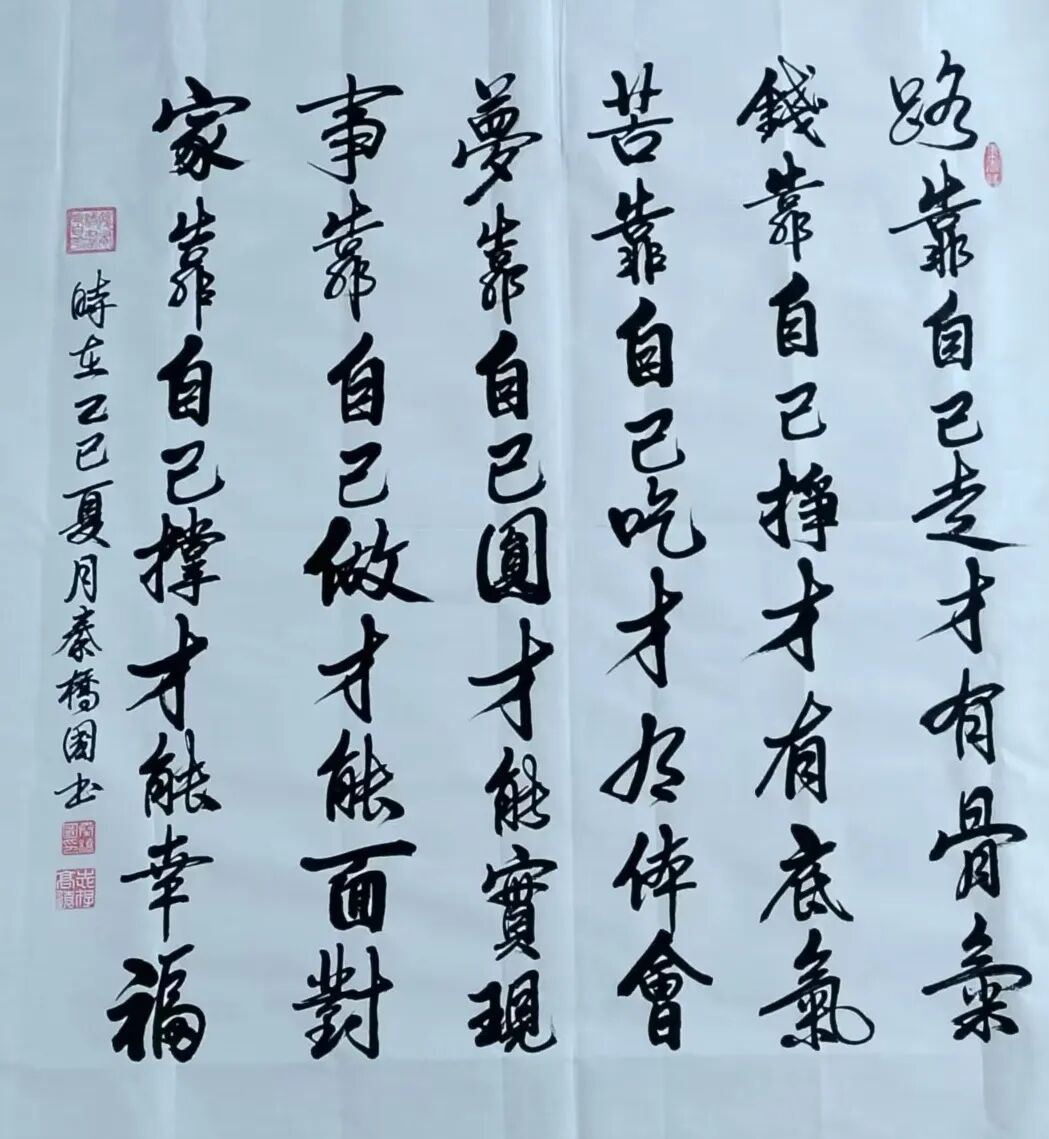 路靠自己走才有骨氣
錢靠自己掙才有底氣
苦靠自己吃才有体會
夢靠自己圓才能實現
事靠自己做才能面對
家靠自己撐才能幸福
時在乙巳夏月秦橋國书